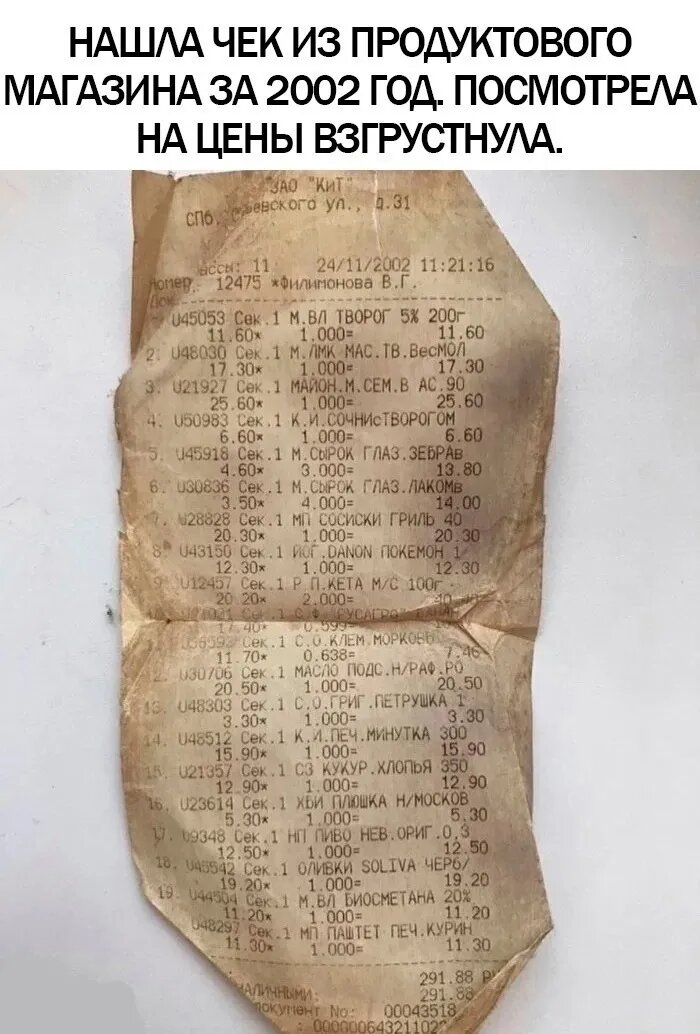 НАШЛА ЧЕК ИЗ ПРОДУКТОВОГО
МАГАЗИНА ЗА 2002 ГОД. ПОСМОТРЕЛА
НА ЦЕНЫ ВЗГРУСТНУЛА.
ЗАО "КИТ"
СПб. ул., д.31
11 24/11/2002 11:21:16
Номер 12475 *Филимонова В.Г.
U45053 Сек.1 М.ВЛ ТВОРОГ 5% 200г
11.60* 1.000= 11.60
2. U48030 Сек.1 М.ЛМК МАС.ТВ.ВесМОЛ
17.30* 1.000= 17.30
3. U21927 Сек.1 МАЙОН.М.СЕМ.В АС.90
25.60* 1.000= 25.60
4. U50983 Сек.1 К.И.СОЧНИсТВОРОГОМ
6.60* 1.000= 6.60
5. U45918 Сек.1 М.СЫРОК ГЛАЗ.ЗЕБРАв
4.60* 3.000= 13.80
6. U30836 Сек.1 М.СЫРОК ГЛАЗ.ЛАКОМв
3.50* 4.000= 14.00
7. U28828 Сек.1 МП СОСИСКИ ГРИЛЬ 40
20.30* 1.000= 20.30
8. U43150 Сек.1 ЙОГ.DANON ПОКЕМОН 1
12.30* 1.000= 12.30
9. U12457 Сек.1 Р.П.КЕТА М/С 100г
20.20* 2.000= 40.40
Сек.1 С.Ф.
17.40* 0.599=
Сек.1 С.О.КЛЕМ.МОРКОВЬ
11.70* 0.638= 7.46
12. U30706 Сек.1 МАСЛО ПОДС.Н/РАФ.РО
20.50* 1.000= 20.50
13. U48303 Сек.1 С.О.ГРИГ.ПЕТРУШКА 1
3.30* 1.000= 3.30
14. U48512 Сек.1 К.И.ПЕЧ.МИНУТКА 300
15.90* 1.000= 15.90
15. U21357 Сек.1 СЗ КУКУР.ХЛОПЬЯ 350
12.90* 1.000= 12.90
16. U23614 Сек.1 ХБИ ПЛЮШКА Н/МОСКОВ
5.30* 1.000= 5.30
17. U9348 Сек.1 НП ПИВО НЕВ.ОРИГ.0,3
12.50* 1.000= 12.50
18. U45542 Сек.1 ОЛИВКИ SOLIVA ЧЕРб/
19.20* 1.000= 19.20
19. U44504 Сек.1 М.ВЛ БИОСМЕТАНА 20%
11.20* 1.000= 11.20
U48297 Сек.1 МП ПАШТЕТ ПЕЧ.КУРИН
11.30* 1.000= 11.30
291.88
НАЛИЧНЫМИ: 291.88
Документ No: 00043518